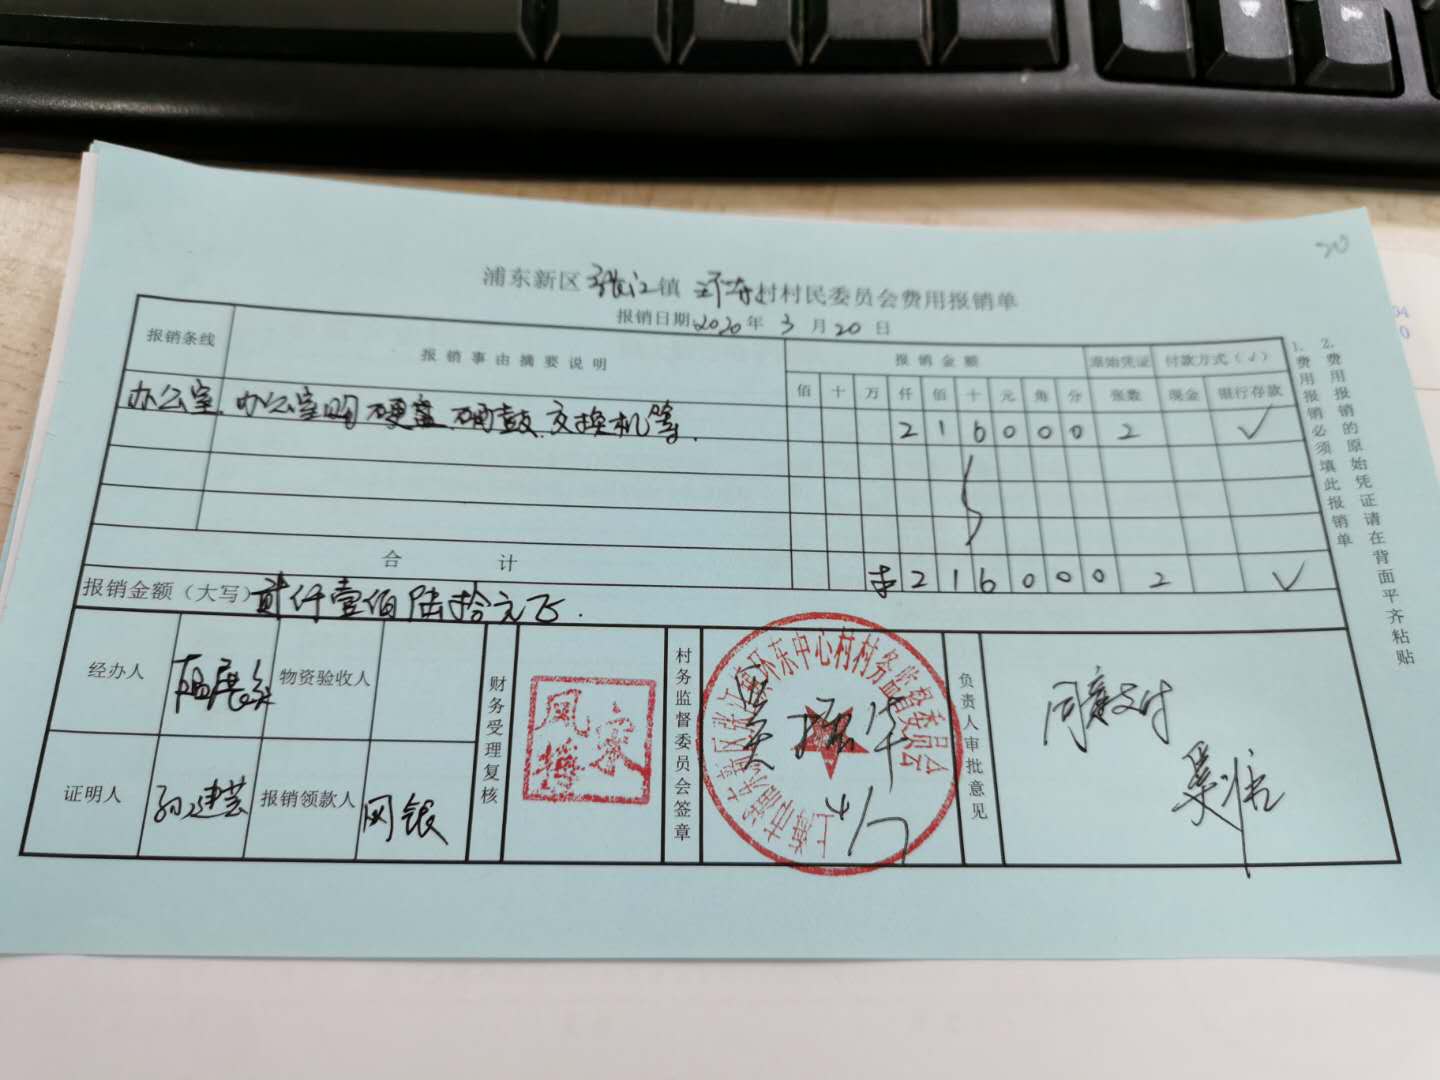 20
浦东新区张江镇环东村村民委员会费用报销单
报销日期2020年3月20日
报销条线 报销事由摘要说明 报销金额 原始凭证 付款方式(√)
佰 十 万 仟 佰 十 元 角 分 张数 现金 银行存款
办公室 办公室购硬盘、硒鼓、交换机等. 2 1 6 0 0 0 2 √
合计 ¥ 2 1 6 0 0 0 2 √
报销金额(大写) 贰仟壹佰陆拾元正.
经办人 物资验收人
证明人 孙建芸 报销领款人 网银
财务受理复核
村务监督委员会签章
吴振华
4/7
上海市浦东新区张江镇环东中心村村务监督委员会
负责人审批意见
同意支付
1.费用报销必须填此报销单
2.费用报销的原始凭证请在背面平齐粘贴